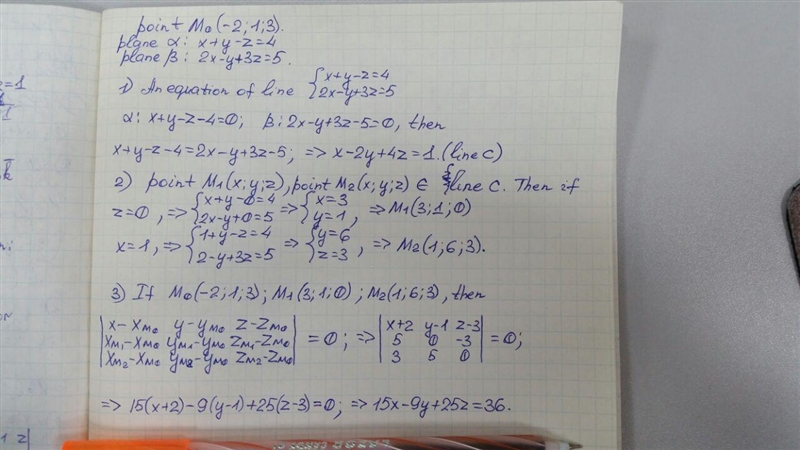 point M₀(-2;1;3).
plane α: x+y-z=4
plane β: 2x-y+3z=5.
1) An equation of line { x+y-z=4
2x-y+3z=5
α: x+y-z-4=0; β: 2x-y+3z-5=0, then
x+y-z-4=2x-y+3z-5; => x-2y+4z=1. (line c)
2) point M₁(x;y;z), point M₂(x;y;z) ∈ line c. Then if
z=0, => { x+y-0=4 => { x=3 => M₁(3;1;0)
2x-y+0=5 y=1,
x=1, => { 1+y-z=4 => { y=6 , => M₂(1;6;3).
2-y+3z=5 z=3
3) If M₀(-2;1;3); M₁(3;1;0); M₂(1;6;3), then
| x-xM₀ y-yM₀ z-zM₀ | | x+2 y-1 z-3 |
| xM₁-xM₀ yM₁-yM₀ zM₁-zM₀ | =0; => | 5 0 -3 | =0;
| xM₂-xM₀ yM₂-yM₀ zM₂-zM₀ | | 3 5 0 |
=> 15(x+2)-9(y-1)+25(z-3)=0; => 15x-9y+25z=36.